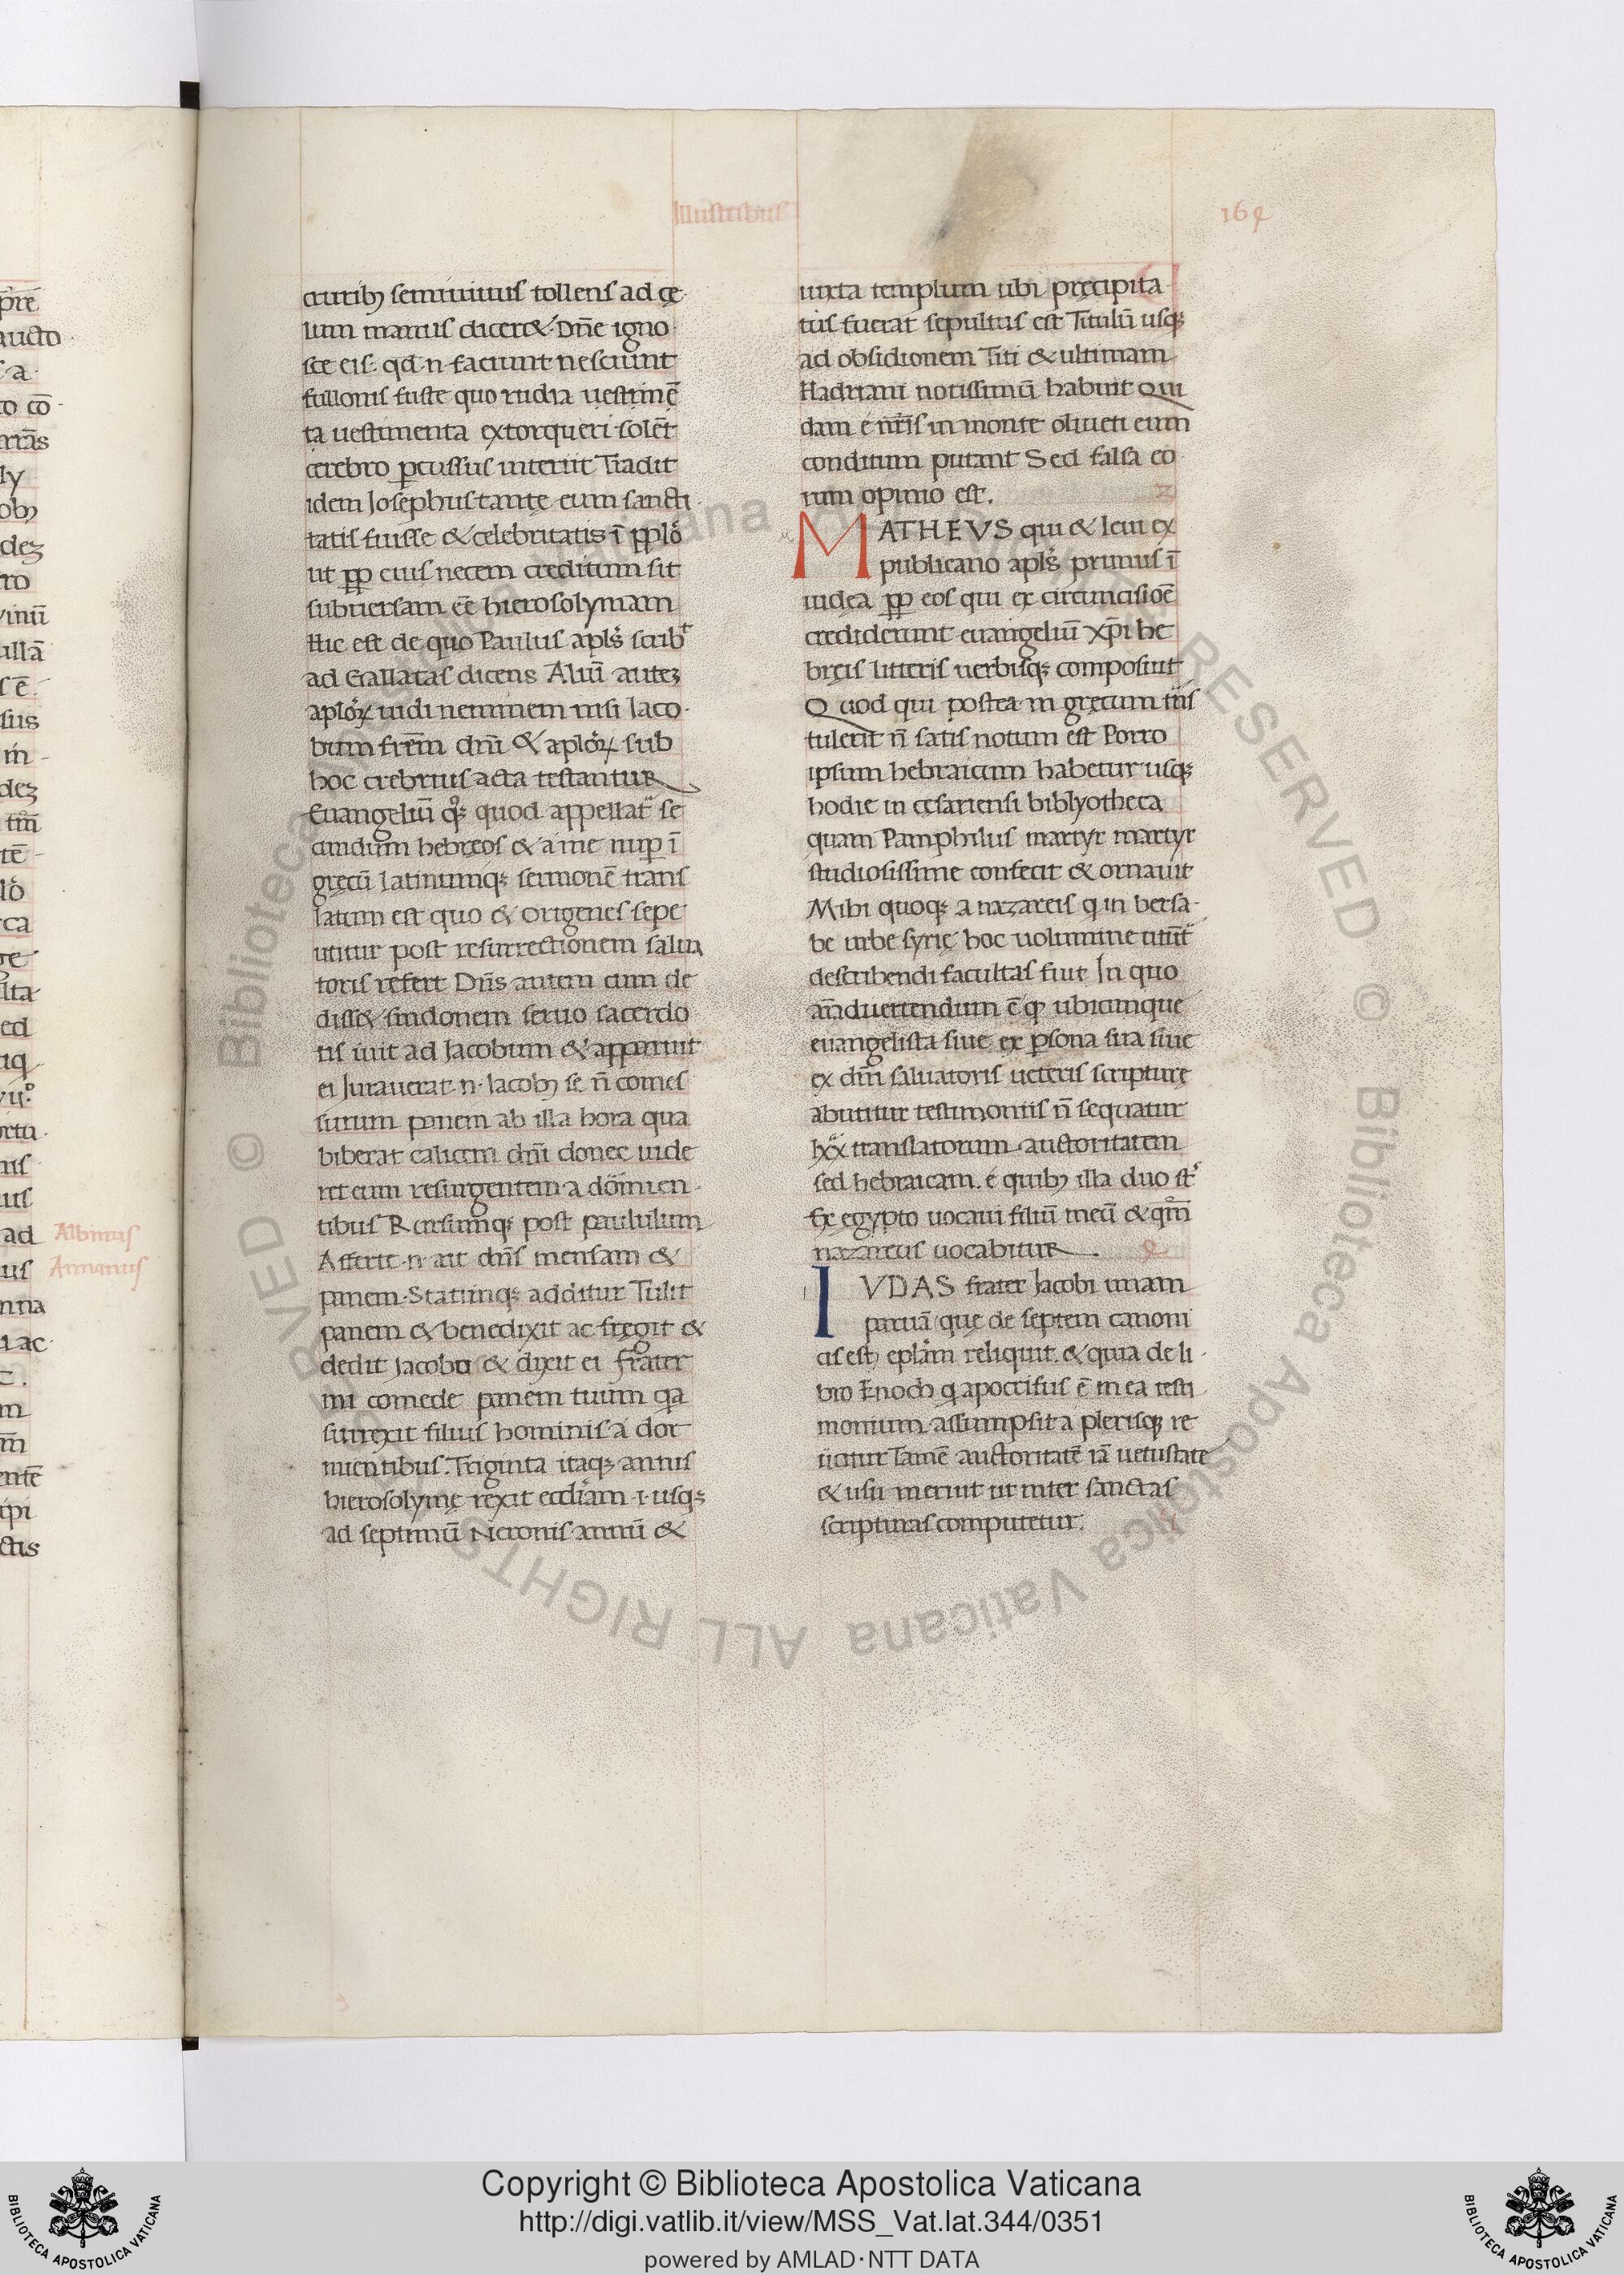 Illustribus
164
cruribꝫ semiuiuus tollens ad cę
lum manus dicer&. Dn̄e igno
sce eis: qd n faciunt nesciunt
fullonis fuste quo rudia uestimē
ta uestimenta extorqueri solēt
cerebro ꝑcussus interiit Tradit
idem Josephus tantę eum sancti
tatis fuisse & celebritatis ī pplo
ut pp eius necem creditum sit
subuersam eē hierosolymam
Hic est de quo Paulus apls scrib
ad Gallatas dicens Aliū autez
aploꝝ uidi neminem nisi Iaco
bum frēm dn̄i & aploꝝ sub
hoc crebrius acta testantur
Euangeliū qꝫ quod appellat se
cundum hebreos & a me nuꝑ ī
gręcū latinumqꝫ sermonē trans
latum est quo & Origenes sepe
utitur post resurrectionem salua
toris refert Dn̄s autem cum de
diss& sindonem seruo sacerdo
tis iuit ad Jacobum & apparuit
ei Jurauerat n Iacobꝫ se n̄ comes
surum panem ab illa hora qua
biberat calicem dn̄i donec uide
ret eum resurgentem a domien
tibus Rursumqꝫ post paululum
Afferte n ait dn̄s mensam &
panem. Statimqꝫ additur Tulit
panem & benedixit ac fregit &
dedit Jacobo & dixit ei frater
mi comede panem tuum qa
surrexit filius hominis a dor
mientibus. Triginta itaqꝫ annis
hierosolymę rexit eccliam .i. usqꝫ
ad septimū Neronis annū &
iuxta templum ubi pręcipita
tus fuerat sepultus est Titulū usqꝫ
ad obsidionem Titi & ultimam
Hadriani notissimū habuit Qui
dam e nr̄is in monte oliueti eum
conditum putant Sed falsa eo
rum opinio est.
MATHEVS qui & leui ex
publicano apls primus ī
iudea pp eos qui ex circuncisiōe
crediderunt euangeliū xp̄i he
breis litteris uerbisqꝫ composuit
Quod qui postea in gręcum
tulerit n̄ satis notum est Porro
ipsum hebraicum habetur usqꝫ
hodie in cęsariensi biblyotheca
quam Pamphilus martyr martyr
studiosissime confecit & ornauit
Mihi quoqꝫ a nazareis q in bersa
be urbe syrię hoc uolumine utūt
describendi facultas fuit In quo
an̄aduertendum ē qꝫ ubicunque
euangelista siue ex ꝑsona sua siue
ex dn̄i saluatoris ueteris scripturę
abutitur testimoniis n̄ sequatur
lxx translatorum auctoritatem
sed hebraicam. e quibꝫ illa duo st
Ex egypto uocaui filiū meū & qm̄
nazareus uocabitur.
IVDAS frater Jacobi unam
paruā que de septem canoni
cis est eplam reliquit. & quia de li
bro Enoch q apocrifus ē in ea testi
monium assumpsit a plerisqꝫ re
iicitur Tamē auctoritatē iā uetustate
& usu meruit ut inter sanctas
scripturas computetur.
Albinus
Annanus
Copyright © Biblioteca Apostolica Vaticana
http://digi.vatlib.it/view/MSS_Vat.lat.344/0351
powered by AMLAD·NTT DATA